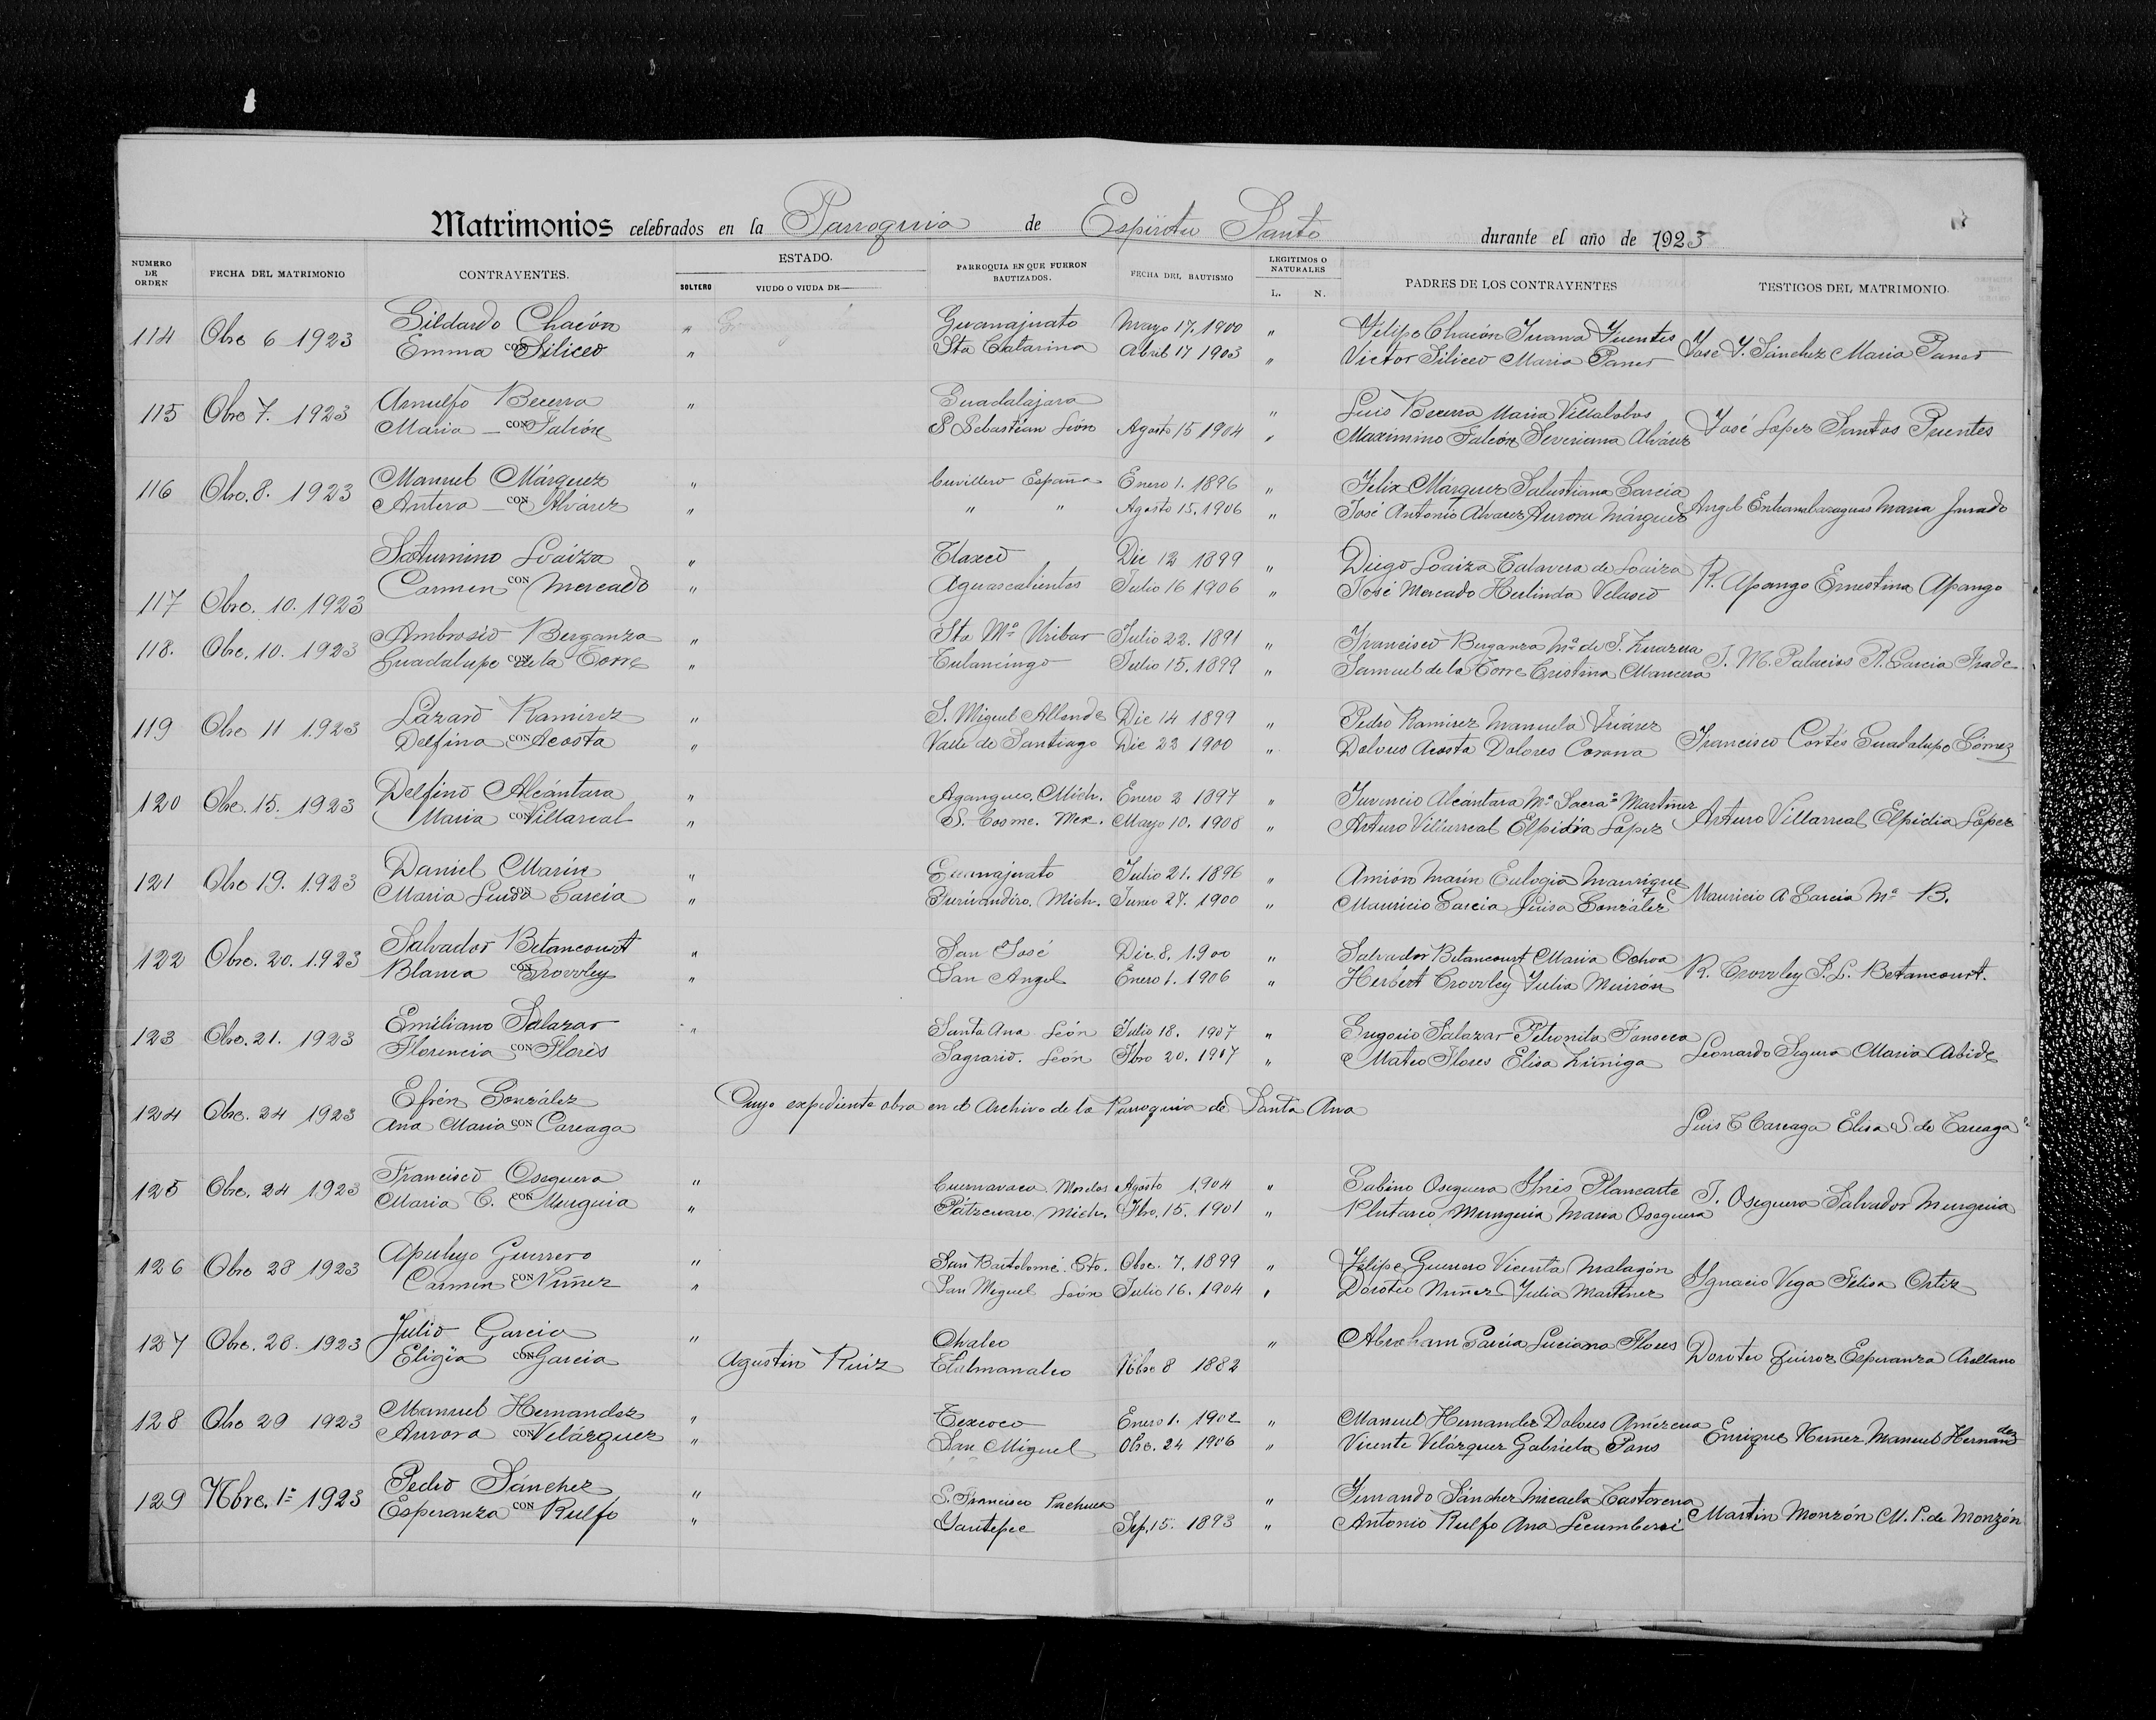 Matrimonios celebrados en la Parroquia de Espiritu Santo durante el año de 1923
NUMERO DE ORDEN
FECHA DEL MATRIMONIO
CONTRAYENTES.
ESTADO.
SOLTERO
VIUDO O VIUDA DE
PARROQUIA EN QUE FUERON BAUTIZADOS.
FECHA DEL BAUTISMO
LEGITIMOS O NATURALES
L. N.
PADRES DE LOS CONTRAYENTES
TESTIGOS DEL MATRIMONIO.
114 Obre 6 1923 Gildardo Chacón " Guanajuato Mayo 17. 1900 " Félipe Chacón Juana Fuentes
Emma con Siliceo " Sta Catarina Abril 17 1903 " Victor Siliceo Maria Panes José Y. Sánchez Maria Panes
115 Obre 7. 1923 Arnulfo Becerra " Guadalajara " Luis Becerra Maria Villalobos
Maria con Falcón S Sebastian León Agosto 15 1904 " Maximino Falcón Severiana Alvárez José López Santos Puentes
116 Obre. 8. 1923 Manuel Márquez " España Enero 1. 1896 " Felix Márquez Salustiana García
Antera con Alvárez " " " Agosto 15. 1906 " José Antonio Alvarez Aurora Márquez Angel Entrambasaguas Maria Jurado
Saturnino Loaiza " Tlaxco Dic 12 1899 " Diego Loaiza Talavera de Loaiza
117 Obre. 10. 1923 Carmen con Mercado " Aguascalientes Julio 16 1906 " José Mercado Herlinda Velasco R. Apango Ernestina Apango
118. Obre. 10. 1923 Ambrosio Berganza " Sta Mª Uribar Julio 22. 1891 " Francisco Berganza Mª de S.
Guadalupe con de la Torre " Tulancingo Julio 15. 1899 " Samuel de la Torre Cristina Mancera J. M. Palacios R. Garcia Frade
119 Obre 11 1923 Lazaro Ramirez " S. Miguel Allende Dic 14 1899 " Pedro Ramirez Manuela Suárez
Delfina con Acosta " Valle de Santiago Dic 23 1900 " Dolores Acosta Dolores Corona Francisco Cortés Guadalupe Gómez
120 Obre. 15. 1923 Delfino Alcántara " Angangueo. Mich. Enero 2 1897 " Juvencio Alcántara Mª Sacraº Martínez
Maria con Villareal " S. Cosme. Mex. Mayo 10. 1908 " Arturo Villarreal Elpidia López Arturo Villarreal Elpidia López
121 Obre 19. 1923 Daniel Marín " Guanajuato Julio 21. 1896 " Marín Eulogia Manrique
Maria Luisa con García " Puruándiro. Mich. Junio 27. 1900 " Mauricio Garcia Luisa González Mauricio A Garcia Mª B.
122 Obre. 20. 1923 Salvador Betancourt " San José Dic. 8. 1900 " Salvador Betancourt Maria Ochoa
Blanca con Crovvley " San Angel Enero 1. 1906 " Herbert Crovvley Julia R. Crovvley S. L. Betancourt.
123 Obre. 21. 1923 Emiliano Salazar " Santa Ana León Julio 18. 1907 " Gregorio Salazar Petronila Fonseca
Florencia con Flores Sagrario. León Fbro 20. 1907 " Mateo Flores Elisa Zúñiga Leonardo Segura Maria Abide
124 Obre. 24 1923 Efrén González Cuyo expediente obra en el Archivo de la Parroquia de Santa Ana
Ana Maria con Careaga Luis C Careaga Elisa S. de Careaga
125 Obre. 24 1923 Francisco Oseguera " Cuernavaca. Morelos Agosto 1904 " Sabino Oseguera Inés Plancarte
Maria C. con Munguia " Pátzcuaro. Mich. Fbro. 15. 1901 " Plutarco Munguia Maria Oseguera J. Oseguera Salvador Munguia
126 Obre 28 1923 Apuleyo Guerrero " San Bartolomé. Gto. Obre. 7. 1899 " Félipe Guerrero Vicenta Malagón
Carmen con Núñez " San Miguel León Julio 16. 1904 " Doroteo Nuñez Julia Martinez Ygnacio Vega Felisa Ortiz
127 Obre. 28. 1923 Julio Garcia " Chalco " Abraham García Luciana Flores
Eligia con Garcia Agustin Ruiz Tlalmanalco Nbre 8 1882 Doroteo Quiroz Esperanza Arellano
128 Obre 29 1923 Manuel Hernandez " Texcoco Enero 1. 1902 " Manuel Hernandez Dolores Amézcua
Aurora con Velázquez " San Miguel Obre. 24 1906 " Vicente Velázquez Gabriela Pons Enrique Nuñez Manuel Hernandez
129 Nbre. 1º 1923 Pedro Sánchez " S. Francisco Pachuca " Fernando Sánchez Micaela Castorena
Esperanza con Rulfo " Yautepec Sep. 15. 1893 " Antonio Rulfo Ana Lecumberri Martin Monzón M. P. de Monzón